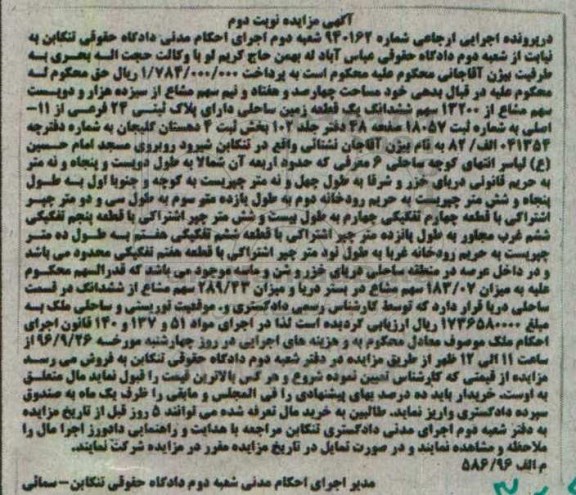 آگهی مزایده نوبت دوم
درپرونده اجرایی ارجاعی شماره ۹۴۰۱۶۲ شعبه دوم اجرای احکام مدنی دادگاه حقوقی تنکابن به
نیابت از شعبه دوم دادگاه حقوقی عباس آباد له بهمن حاج کریم لو با وکالت حجت اله بحری به
طرفیت بیژن آقاجانی محکوم علیه محکوم است به پرداخت ۱/۷۸۴/۰۰۰/۰۰۰ ریال حق محکوم له
محکوم علیه در قبال بدهی خود مساحت چهارصد و هفتاد و نیم سهم مشاع از سیزده هزار و دویست
سهم مشاع از ۱۳۲۰۰ سهم ششدانگ یک قطعه زمین ساحلی دارای پلاک ثبتی ۲۴ فرعی از ۱۱-
اصلی به شماره ثبت ۱۸۰۵۷ صفحه ۴۸ دفتر جلد ۱۰۲ بخش ثبت ۴ دهستان گلیجان به شماره دفترچه
۰۴۱۳۵۴ الف/ ۸۲ به نام بیژن آقاجان نشتائی واقع در تنکابن شیرود روبروی مسجد امام حسین
(ع) لپاسر انتهای کوچه ساحلی ۶ معرفی که حدود اربعه آن شمالا به طول دویست و پنجاه و نه متر
به حریم قانونی دریای خزر و شرقا به طول چهل و نه متر چپریست به کوچه و جنوبا اول به طول
پنجاه و شش متر چپریست به حریم رودخانه دوم به طول یازده متر سوم به طول سی و دو متر چپر
اشتراکی با قطعه چهارم تفکیکی چهارم به طول بیست و شش متر چپر اشتراکی با قطعه پنجم تفکیکی
ششم غرب مجاور به طول پانزده متر چپر اشتراکی با قطعه ششم تفکیکی هفتم به طول ده متر
چپریست به حریم رودخانه غربا به طول نود متر چپر اشتراکی با قطعه هفتم تفکیکی محدود می باشد
و در داخل عرصه در منطقه ساحلی دریای خزر و شن و ماسه موجود می باشد که قدرالسهم محکوم
علیه به میزان ۱۸۳/۰۷ سهم مشاع در بستر دریا و میزان ۲۸۹/۴۳ سهم مشاع از ششدانگ در قسمت
ساحلی دریا قرار دارد که توسط کارشناس رسمی دادگستری و موقعیت توریستی و ساحلی ملک به
مبلغ ۱۷۳۶۵۸۰۰۰۰ ریال ارزیابی گردیده است لذا در اجرای مواد ۵۱ و ۱۳۷ و ۱۴۰ قانون اجرای
احکام ملک موصوف معادل محکوم به و هزینه های اجرایی در روز چهارشنبه مورخه ۹۶/۹/۲۶ از
ساعت ۱۱ الی ۱۲ ظهر از طریق مزایده در دفتر شعبه دوم دادگاه حقوقی تنکابن به فروش می رسد
مزایده از قیمتی که کارشناس تعیین نموده شروع و هر کس بالاترین قیمت را قبول نماید مال متعلق
به اوست. خریدار باید ده درصد بهای پیشنهادی را فی المجلس و مابقی را ظرف یک ماه به صندوق
سپرده دادگستری واریز نماید. طالبین به خرید مال تعرفه شده می توانند ۵ روز قبل از تاریخ مزایده
به دفتر شعبه دوم اجرای مدنی دادگستری تنکابن مراجعه با هدایت و راهنمایی دادورز اجرا مال را
ملاحظه و مشاهده نمایند و در صورت تمایل در تاریخ مزایده مقرر در مزایده شرکت نمایند.
م الف ۵۸۶/۹۶
مدیر اجرای احکام مدنی شعبه دوم دادگاه حقوقی تنکابن-سمائی